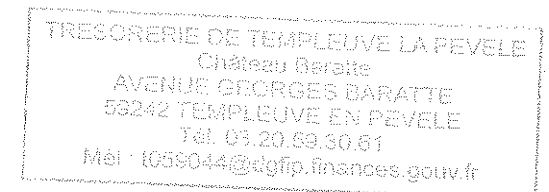 TRESORERIE DE TEMPLEUVE LA PEVELE
Château Baratte
AVENUE GEORGES BARATTE
59242 TEMPLEUVE EN PEVELE
Tél. 03.20.59.30.61
Mél : t059044@dgfip.finances.gouv.fr